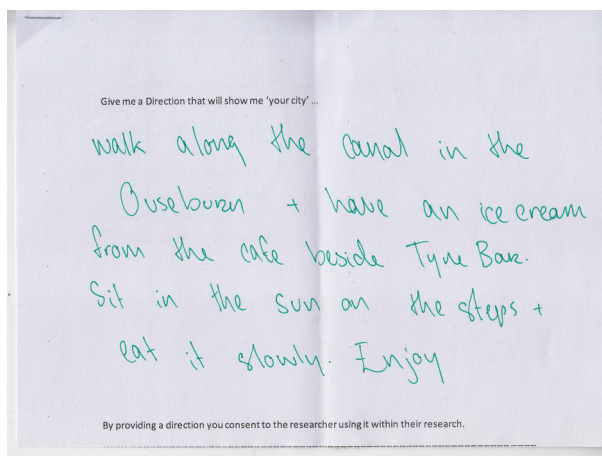 Give me a Direction that will show me 'your city' ...
walk along the canal in the
Ouseburn + have an ice cream
from the cafe beside Tyne Bar.
Sit in the sun on the steps +
eat it slowly. Enjoy
By providing a direction you consent to the researcher using it within their research.